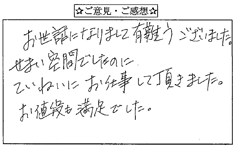 ☆ご意見・ご感想☆
お世話になりまして有難うございました。
せまい空間でしたのに
ていねいにお仕事して頂きました。
お値段も満足でした。